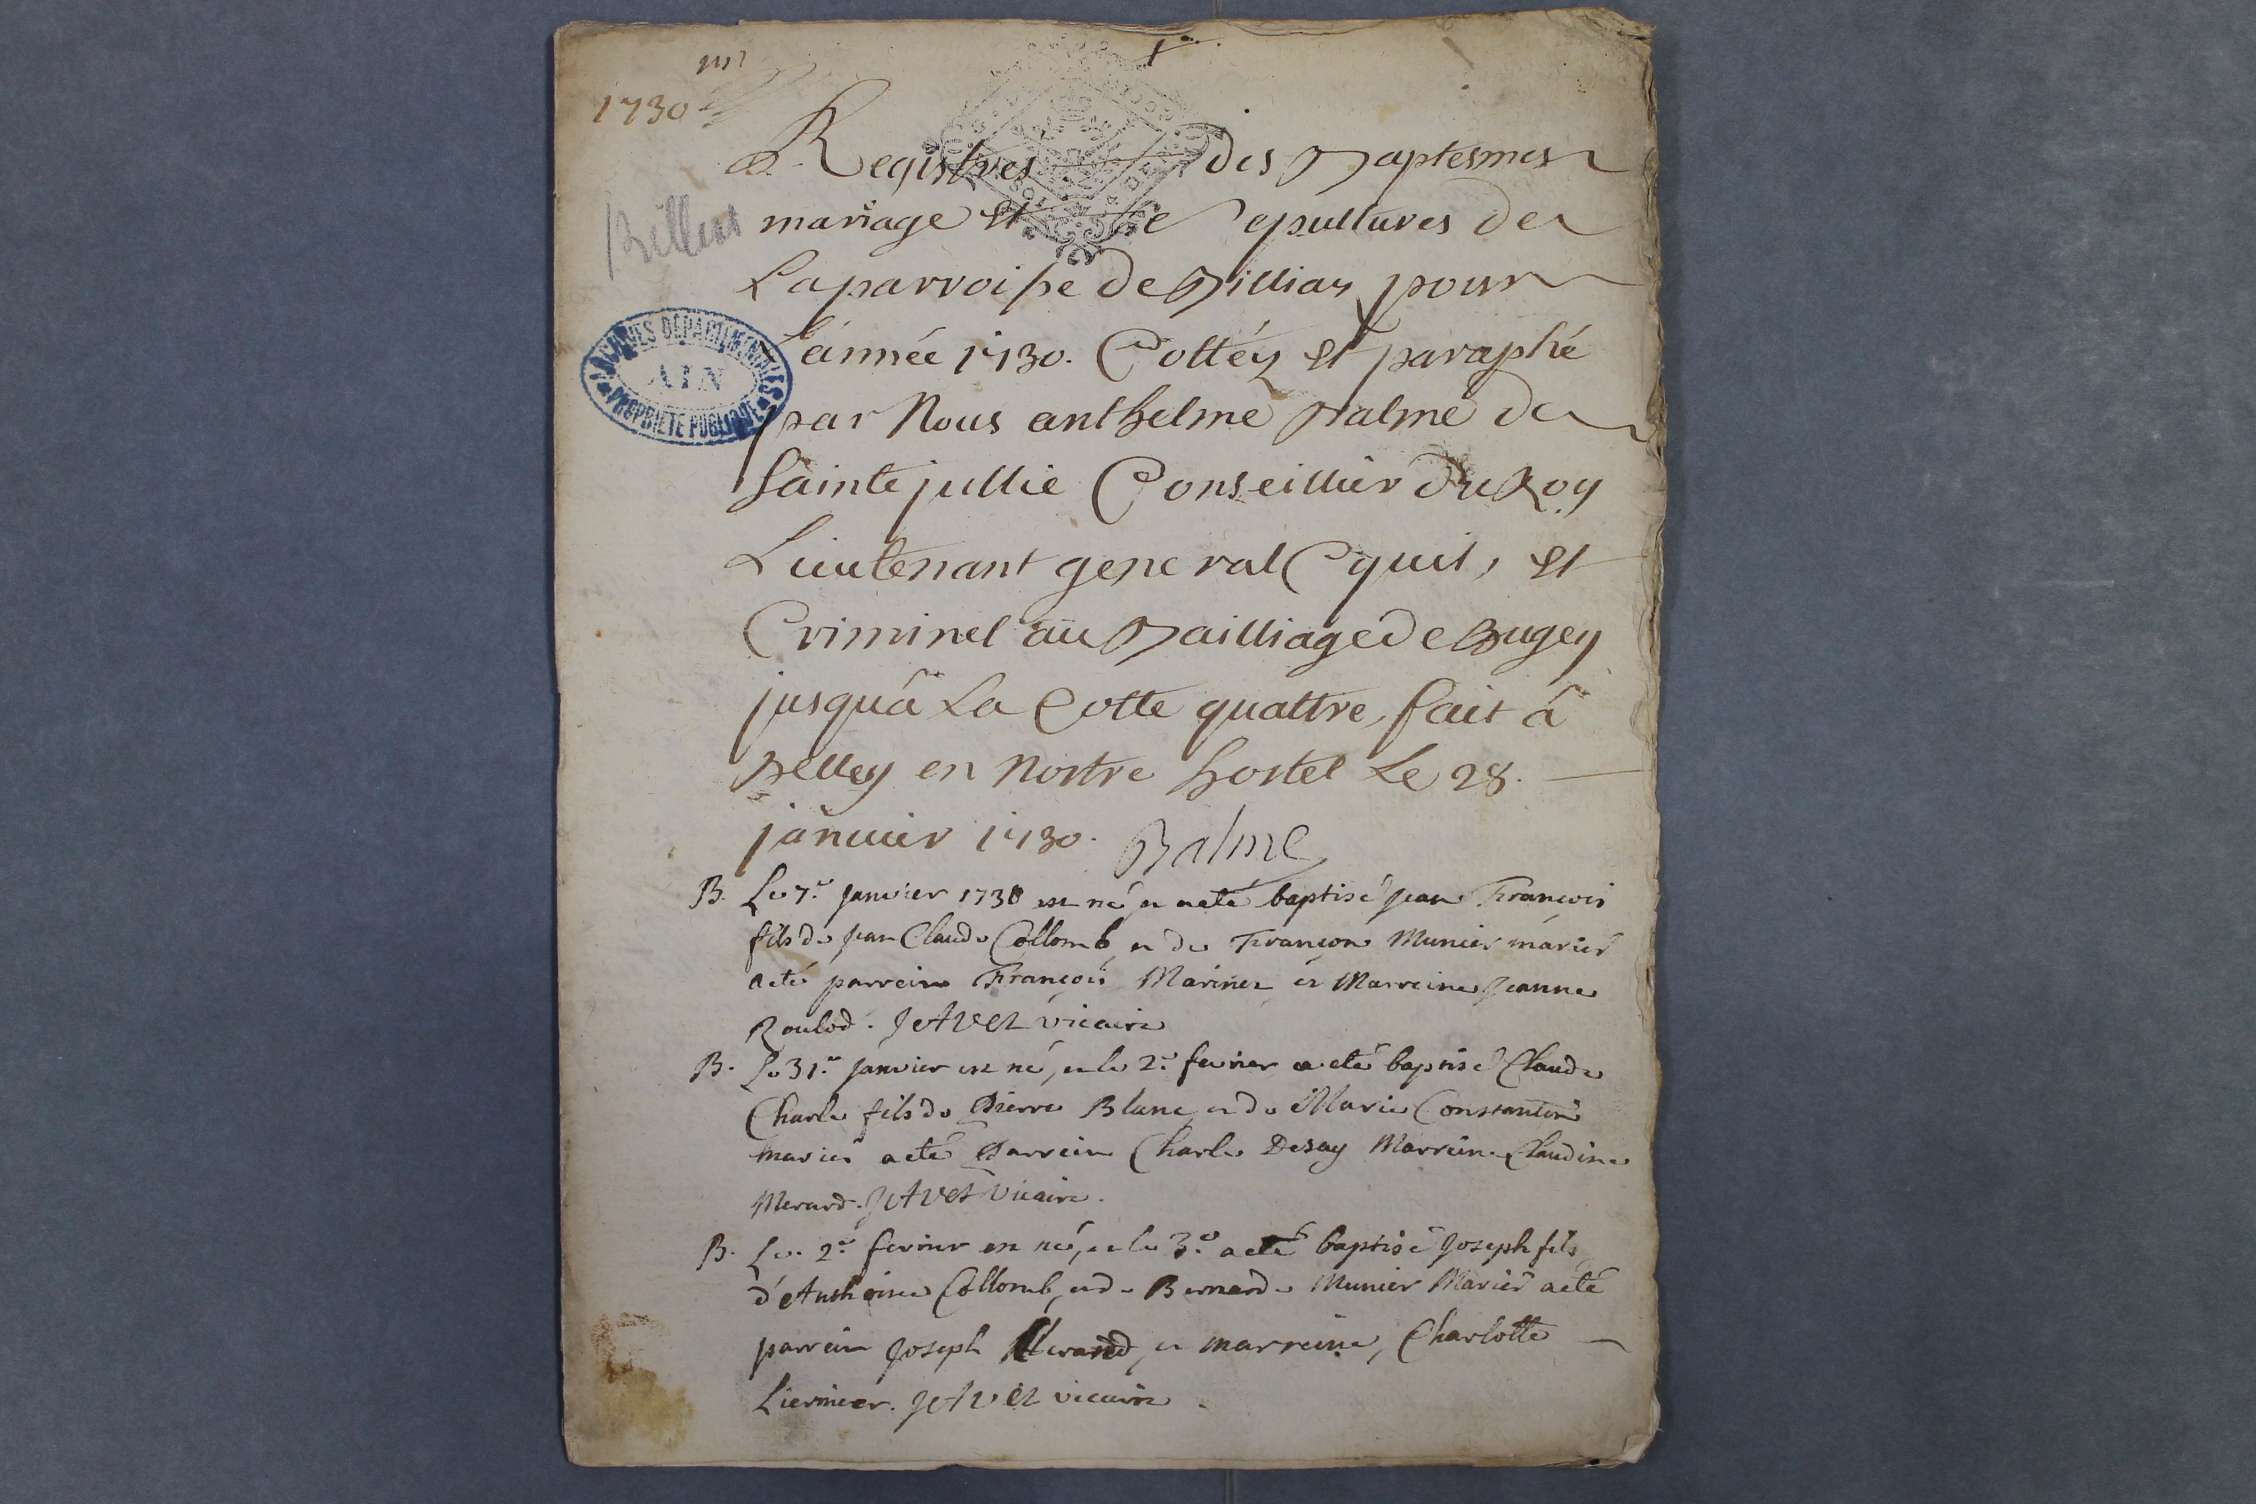 1730
Registres des Baptesmes
mariage et de Sepultures de
La parroisse de Billiaz pour
L'année 1730. Cottéz et paraphé
par Nous anthelme Balme de
Sainte jullie Conseillier du Roy
Lieutenant general Cyuil, et
Criminel au Bailliage de Bugey
jusqu'â La Cotte quattre, fait â
Belley en Nostre hostel Le 28.
januier 1730. Balme
ARCHIVES DÉPARTEMENTALES
AIN
PROPRIÉTÉ PUBLIQUE
B. Le 7.e Janvier 1730 est né et a eté baptisé Jean François
fils de Jean Claude Collomb, et de Françoise Munier mariés
a eté parrein François Marinet et Marreine Jeanne
Roulod. Jetvet vicaire
B. Le 31.e Janvier est né, et le 2.e fevrier a eté baptisé Claude
Charle fils de Pierre Blanc, et de Marie Constantin
mariés a eté Parrein Charle Desay Marreine Claudine
Merard. Jetvet Vicaire.
B. Le 2.e fevrier est né, et le 3.e a eté baptisé Joseph fils
d'Anthoine Collomb, et de Bernarde Munier Mariés a eté
parrein Joseph et marreine, Charlotte
Liermier. Jetvet vicaire